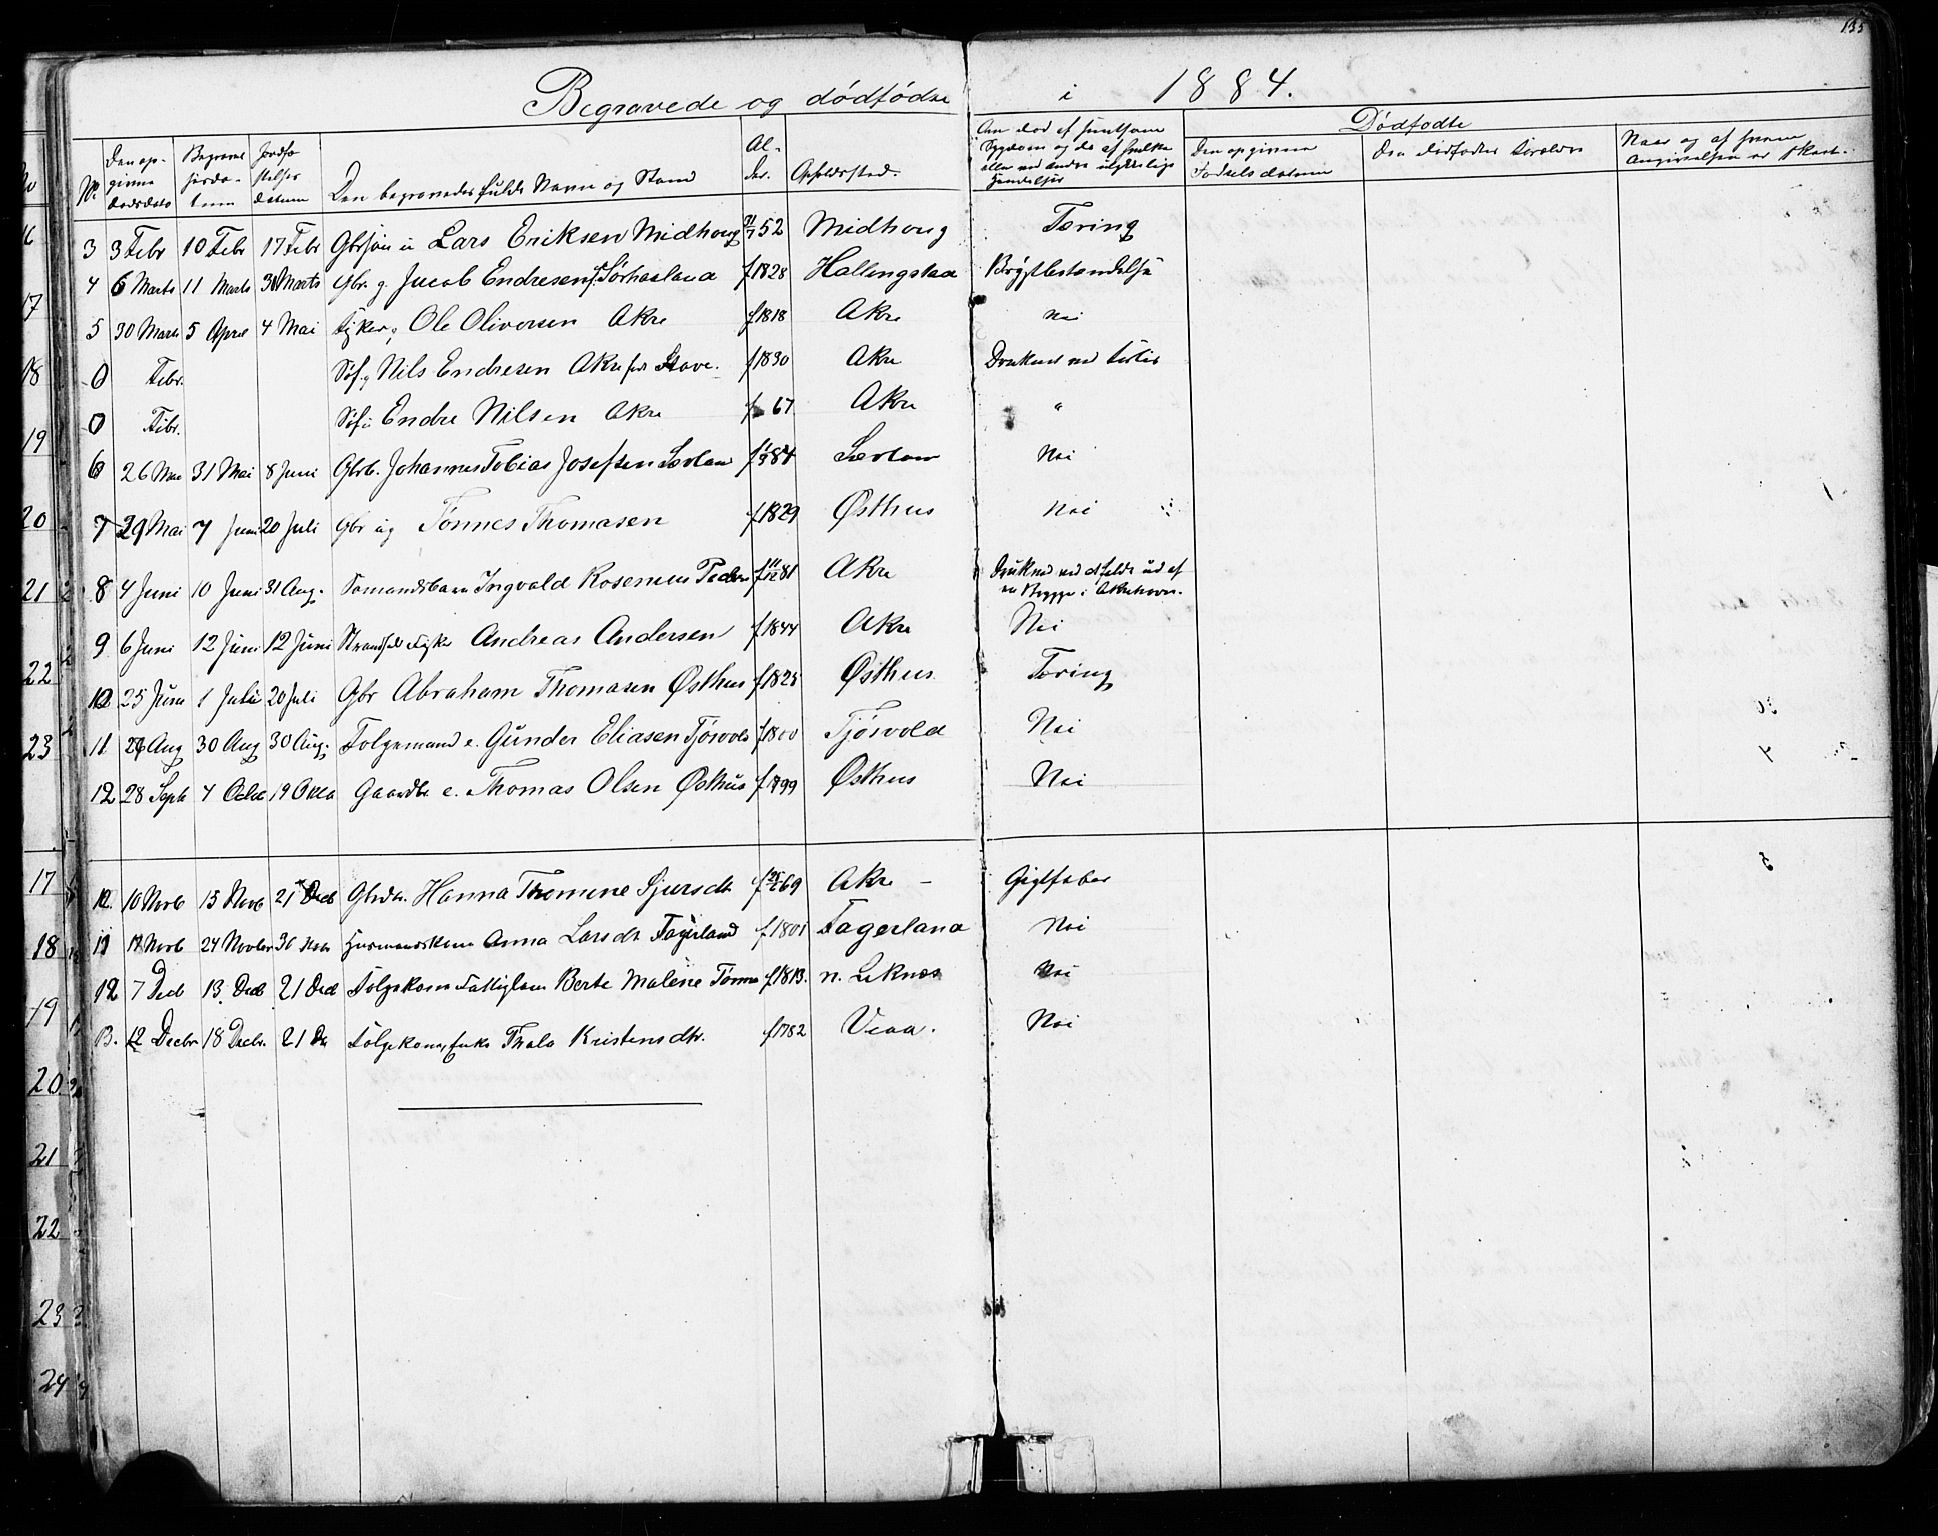 135
Begravede og dødfødte i 1884.
No Den opgivne dødsdato Begravelsesdatum Jordfæstelses datum Den begravedes fulde Navn og Stand Alder. Opholdssted.
Dødfødte
Den opgivne Fødselsdatum Den dødfødtes Forældre Naar og af hvem Angivelsen er skeet.
3 3 Febr 10 Febr 17 Febr Lars Eriksen Midhoug 52 Midhoug Tæring
4 6 Marts 11 Marts 30 Marts Gbr g. Jacob Endresen Sørhaaland f 1828 Hallingstad Brystbetændelse
5 30 Marts 5 April 4 Mai Fisker g Ole Oliversen Akre f 1818 Akre Nei
0 Febr. Nils Endresen Akre Stave. f 1830 Akre Druknet ved
0 Febr. Endre Nilsen Akre f 67 Akre "
6 26 Mai 31 Mai 8 Juni Gbrb. Johannes Tobias Josefsen Sævtow f 84 Sævtow Nei
7 29 Mai 7 Juni 20 Juli Gbr ug Tønnes Thomasen f 1829 Østhus Nei
8 4 Juni 10 Juni 31 Aug. Sømandsbarn Ingvald Rosenius Peders f 11/12 81 Akre Druknet ved at falde ud af
en Brygge i Akrehavn.
9 6 Juni 12 Juni 12 Juni Strandsid Fisker Andreas Andersen f 1844 Akre Nei
10 25 Juni 1 Juli 20 Juli Gbr Abraham Thomasen Østhus f 1825 Østhus Tæring
11 26 Aug 30 Aug 30 Aug. Folgemand e. Gunder Eliasen Tjøsvold f 1800 Tjøsvold Nei
12 28 Septb 4 Octob 19 Octb Gaardbr e. Thomas Olsen Østhus f 1799 Østhus Nei
10 10 Novb 15 Novb 21 Decb Gbrdtr. Hanna Thomine Sjursdtr f 69 Akre Gigtfeber
11 18 Novb 24 Novber 30 Novb Husmandskone Anna Larsdtr Fagerland f. 1801 Fagerland Nei
12 7 Decb 13 Decb 21 Decb Folgekone Fattiglem Berte Malene Tønnes f 1813. n. Liknes Nei
13. 12 Decbr 18 Decbr. 21 De Folgekone, Enke Thala Kristensdtr. f 1782 Veaa. Nei
16
17
18
19
20
21
22
23
17
18
19
20
21
22
23
24